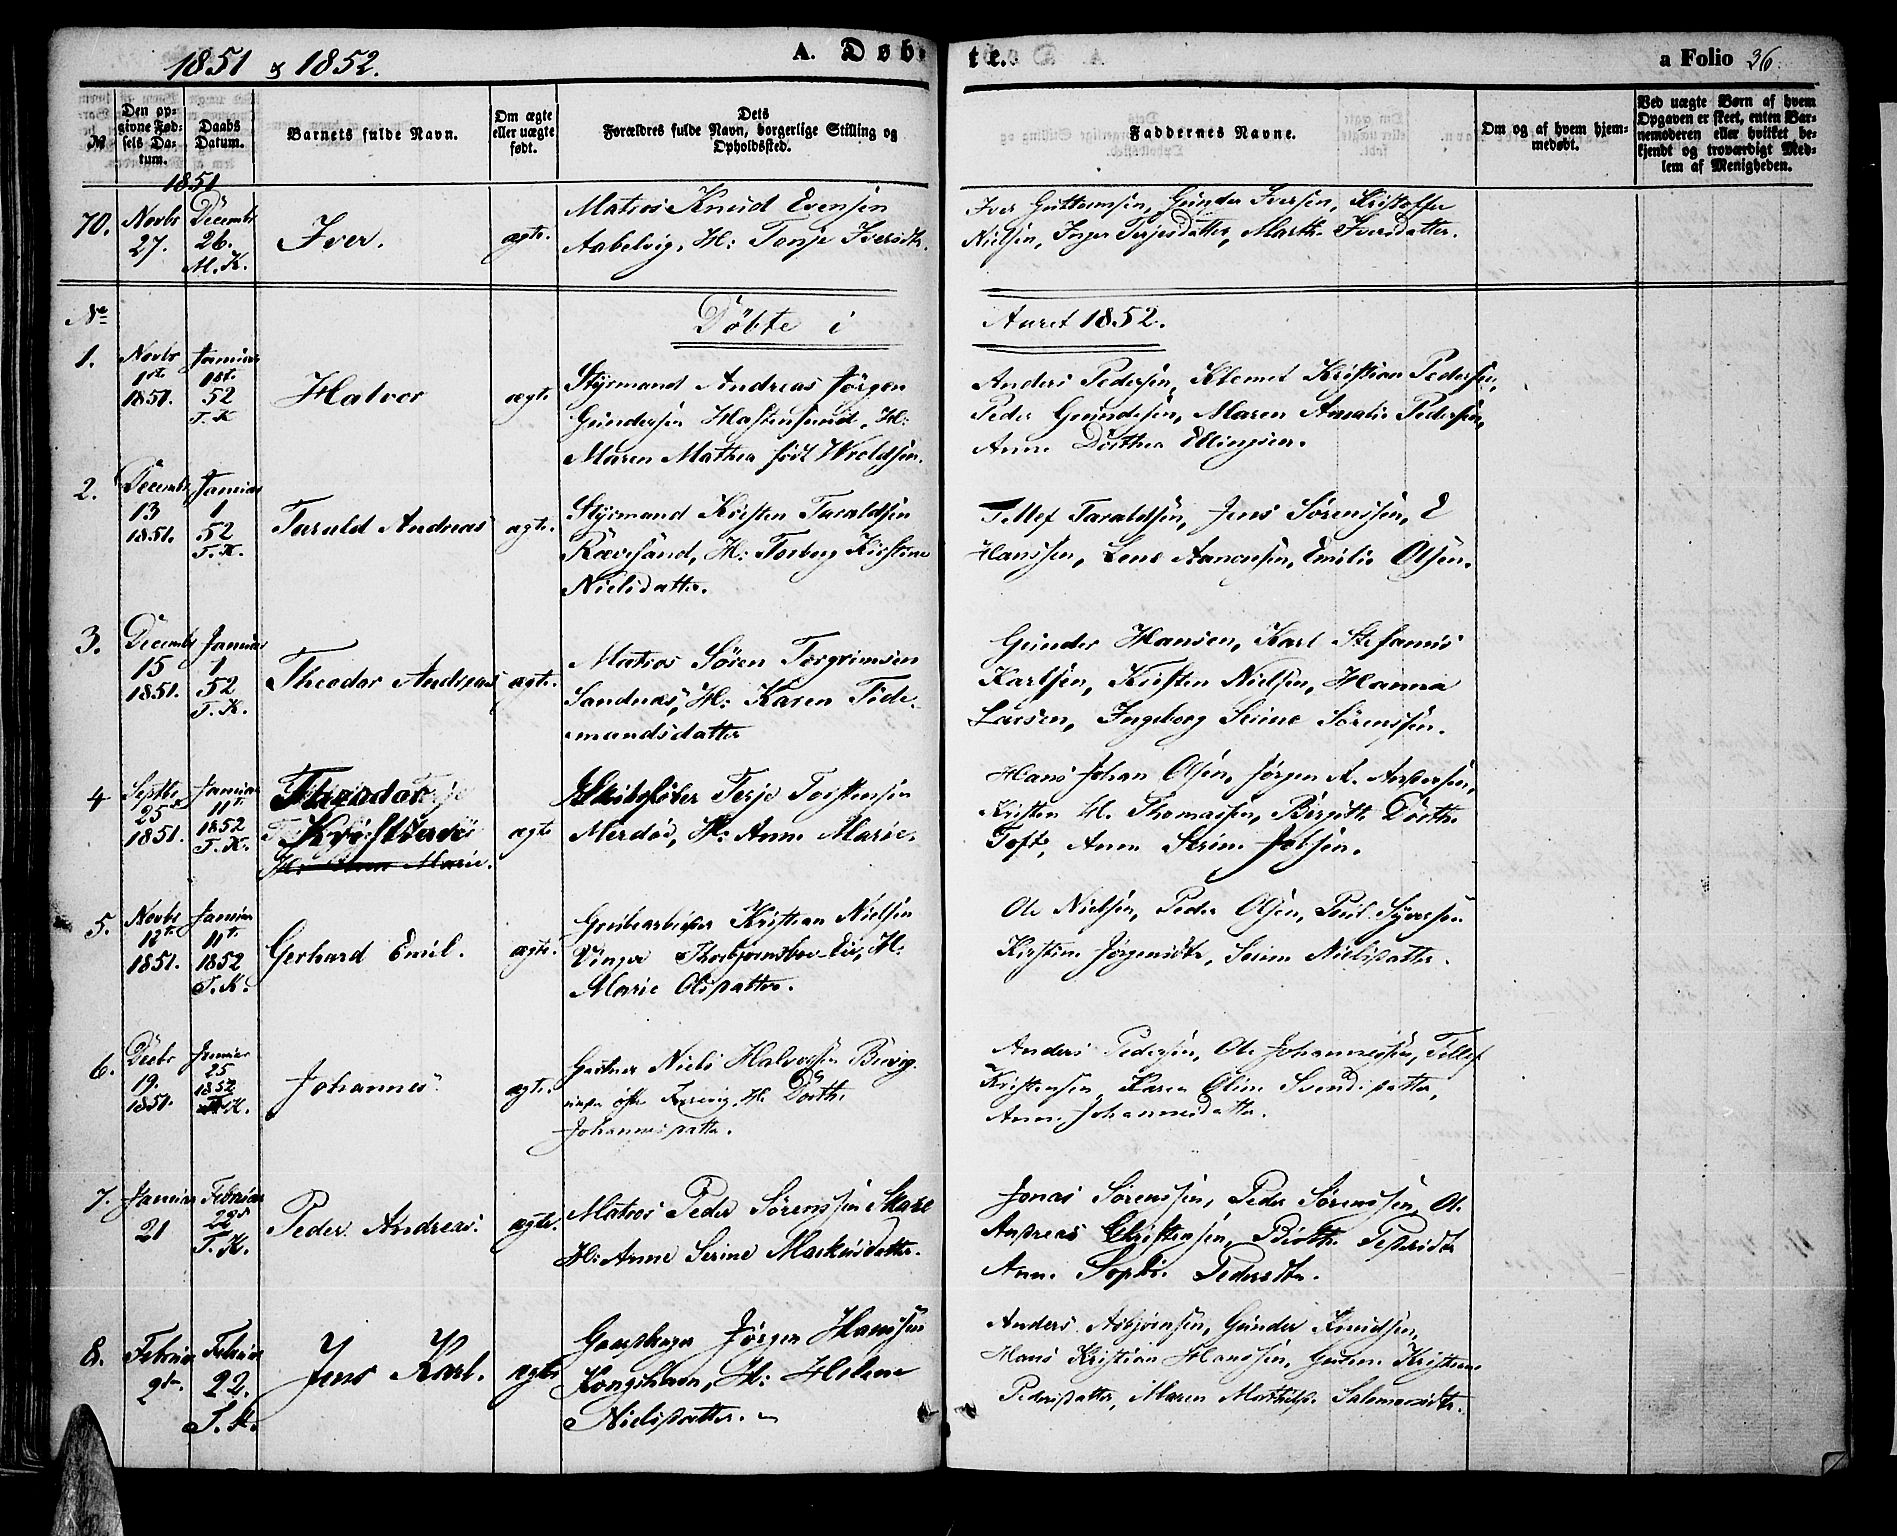 1851 & 1852.
A. Døb-
te.
a Folio 36.
№
Den op-
givne Fød-
sels Da-
tum.
Daabs
Datum.
Barnets fulde Navn.
Om ægte
eller uægte
født.
Dets
Forældres fulde Navn, borgerlige Stilling og
Opholdssted.
Faddernes Navne.
Om og af hvem hjem-
medøbt.
Ved uægte Børn af hvem
Opgaven er skeet, enten Bar-
nemoderen eller hvilket be-
kjendt og troværdigt Med-
lem af Menigheden.
1851
70.
Novbr
27.
Decembr
26.
M. K.
Iver.
ægte.
Matros Knud Evensen
Aabelvig, H: Tonje Iversdtr.
Iver Guttormsen, Gunder Iversen, Kristoffer
Nielsen, Inger Terjesdatter, Marthe Iversdatter.
№
Döbte i
Aaret 1852.
1.
Novbr
1st.
1851.
Januar
1st.
52
T. K
Halvor
ægte
Styrmand Andreas Jørgen
Gundersen Hastensund, H:
Maren Mathea født Woldsen.
Anders Pedersen, Klemet Kristian Pedersen,
Peder Gundersen, Maren Amalie Pedersen,
Anne Dorthea Ellingsen.
2.
Decembr
13
1851.
Januar
1
52
T. K.
Tarald Andreas
ægte.
Styrmand Kristen Taraldsen
Rævesand, H: Torborg Kirstine
Nielsdatter.
Tellef Taraldsen, Jens Sørenssen, E
Hanssen, Lene Aanonsen, Emilie Olsen.
3.
Decembr
15
1851.
Januar
1
52
T. K.
Theodor Andreas
ægte.
Matros Sören Torgrimsen
Sandnæs, H: Karen Tide-
mandsdatter
Gunder Hansen, Karl Stefanus
Karlsen, Kirsten Nielsen, Hanna
Larsen, Ingeborg Serine Sörenssen.
4
Septbr
25d
1851.
Januar
11t.
1852
T. K.
Theodor
H: Anne Marie.
ægte
Terje Torstensen
Merdøe, H: Anne Marie.
Hans Johan Olsen, Jørgen A. Andersen,
Kristen H. Thomassen, Birgitte Dorth.
Toft, Anne Serine Jobsen.
5.
Novbr
12t.
1851.
Januar
11t.
1852
T. K.
Gerhard Emil.
ægte.
Grubearbeider Kristian Nielsen
Vinger Thorbjørnsboe Eie, H:
Marie Olsdatter.
Ole Nielsen, Peder Olsen, Poul Syversen
Kirstine Jørgensdtr, Serine Nielsdatter.
6.
Decbr
19.
1851.
Januar
25
1852
K.
Johannes.
ægte.
Gartner Niels Halvorsen Buvig
H: Dorth.
Johannesdatter.
Anders Pedersen, Ole Johannessen, Tellef
Kristensen, Karen Oline Svendsdatter,
Anne Johannesdatter.
7.
Januar
21
Februar
22d
T. K.
Peder Andreas.
ægte.
Matros Peder Sörenssen Skare
H: Anne Serine Markusdatter.
Jonas Sörenssen, Peder Sörenssen, O.
Andreas Christensen, Birthe Pedersdtr
Anne Sophie Pedersdtr.
8.
Februar
9de.
Februar
22.
T. K.
Jens Karl.
ægte
Jørgen Hanssen
Kongshavn, H: Helene
Nielsdatter.
Anders Asbjørnsen, Gunder Knudsen,
Hans Kristian Hanssen, Kristine
Pedersdatter, Maren Mathilde Salomonsdtr.